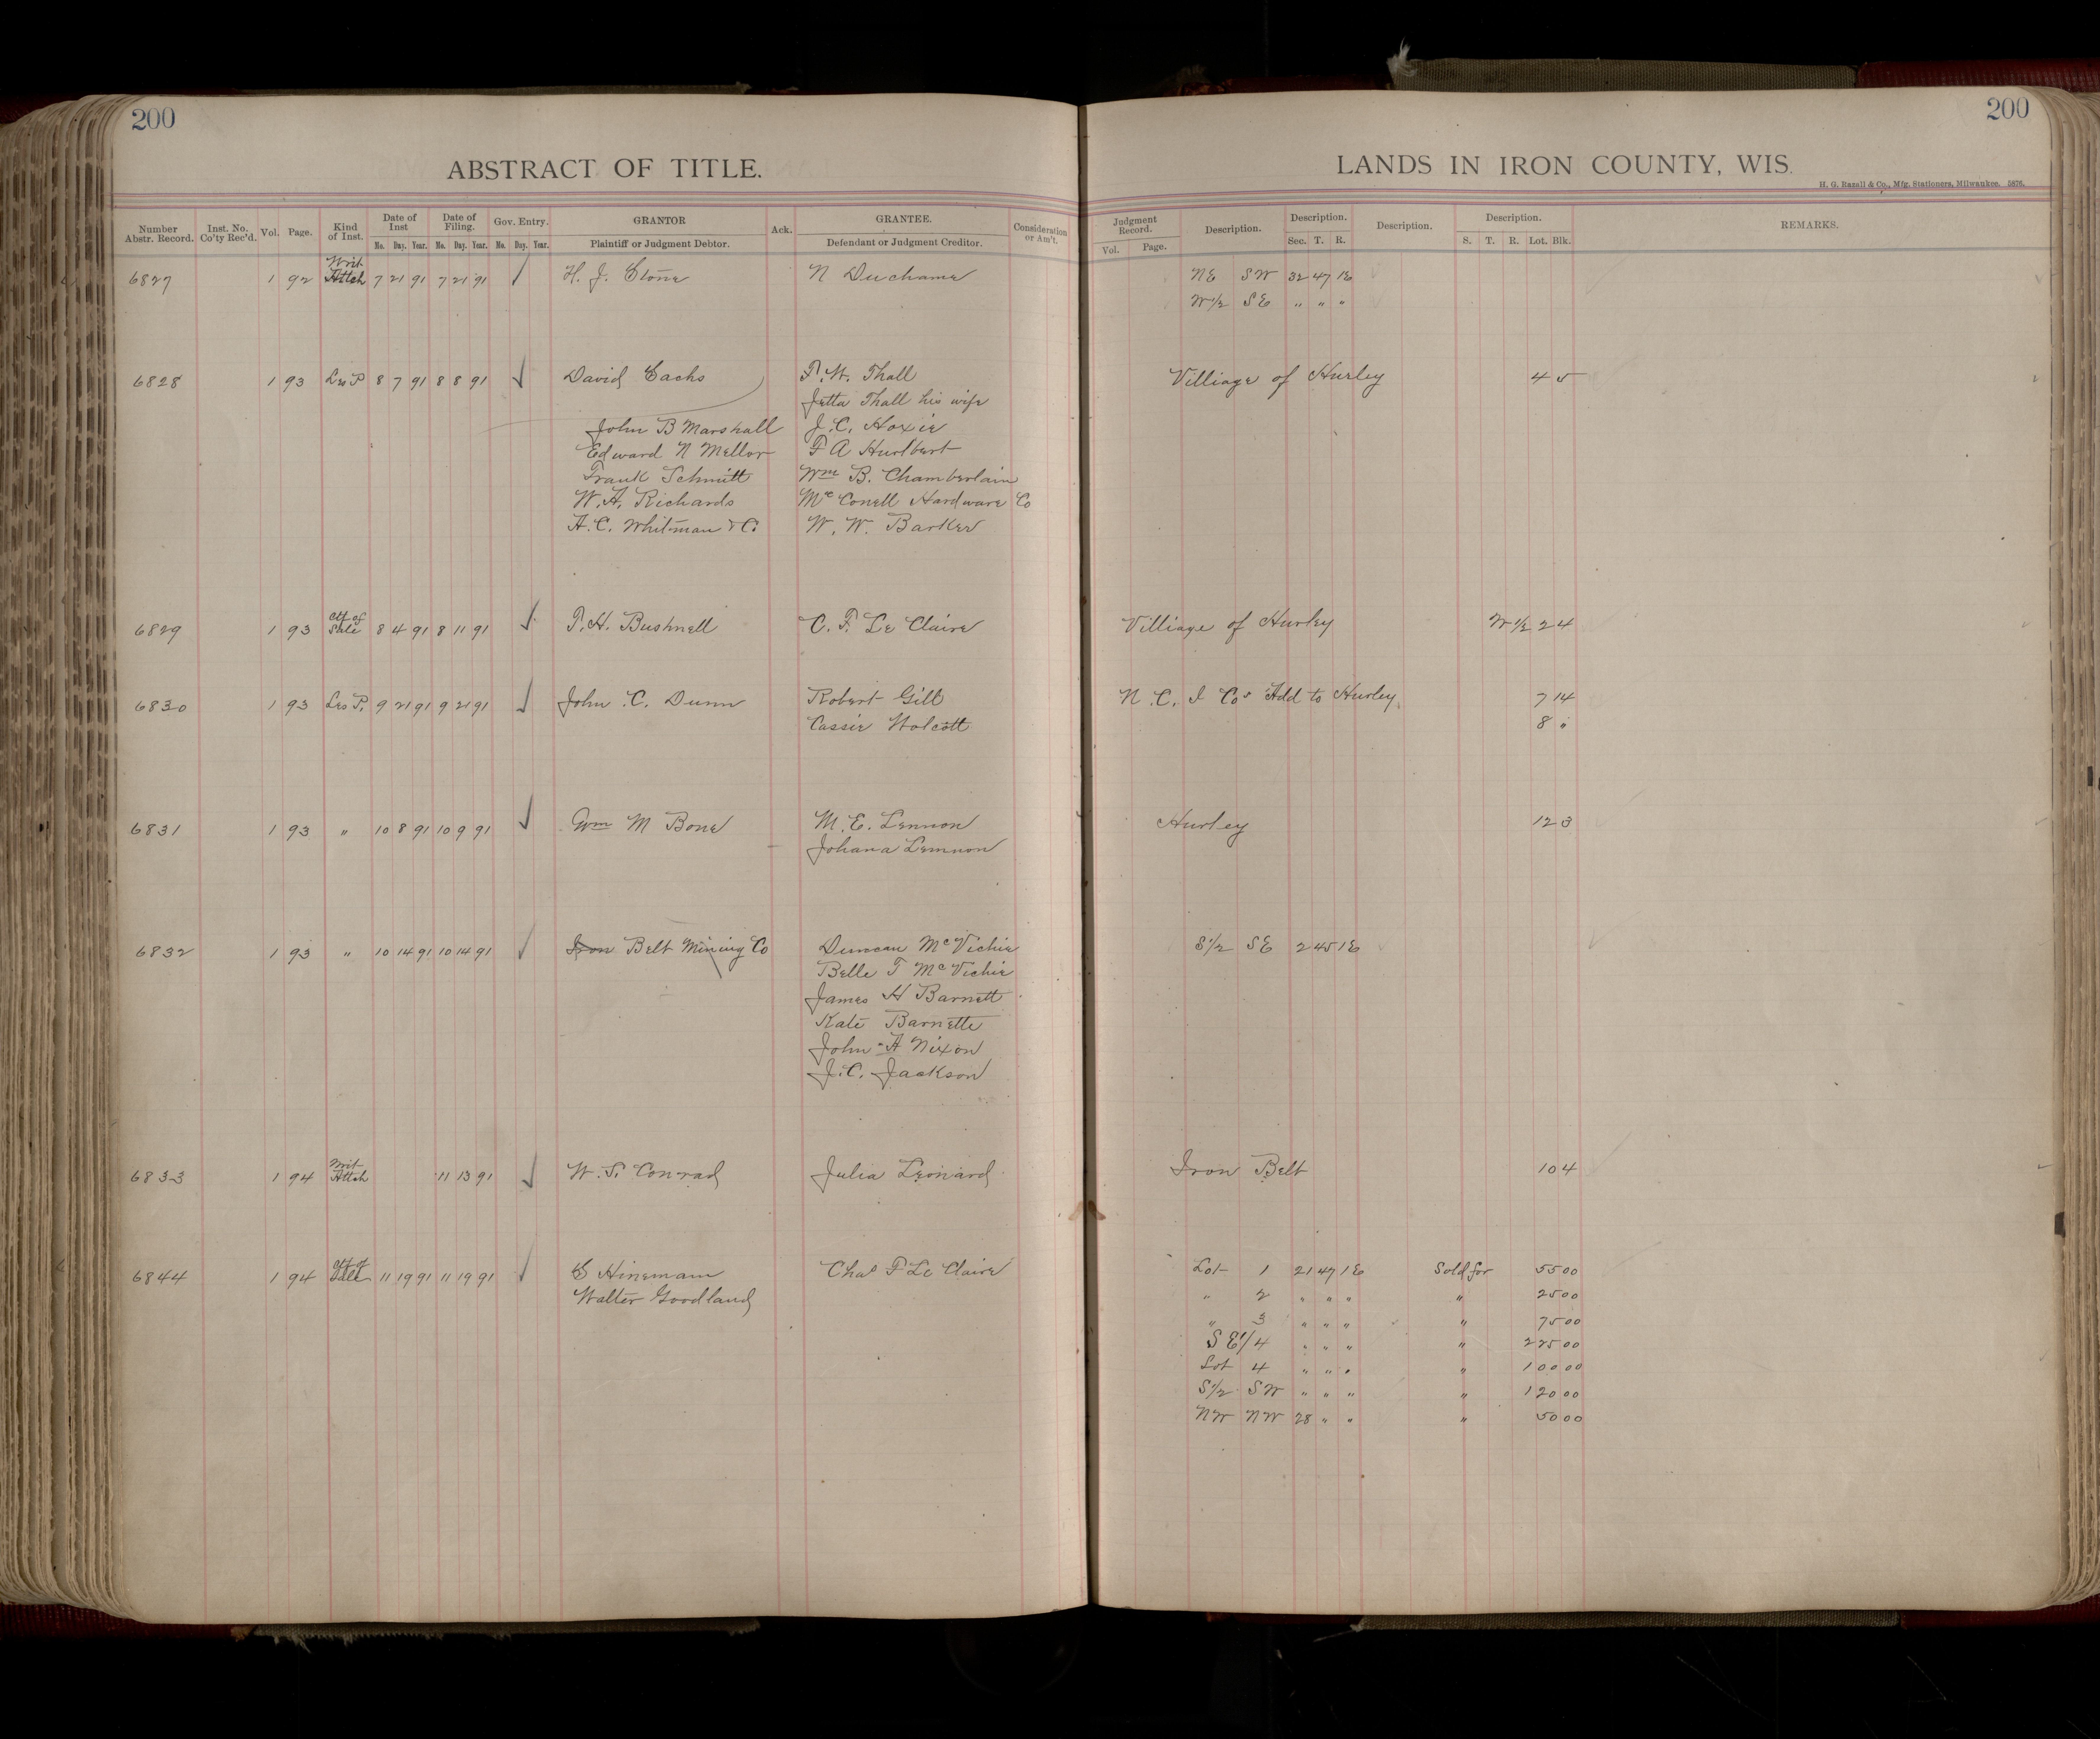 200
200
ABSTRACT OF TITLE.
LANDS IN IRON COUNTY, WIS.
H. G. Razall & Co., Mfg. Stationers, Milwaukee. 5876.
Number Abstr. Record. Inst. No. Co'ty Rec'd. Vol. Page. Kind of Inst. Date of Inst Mo. Day. Year. Date of Filing. Mo. Day. Year. Gov. Entry. Mo. Day. Year. GRANTOR Plaintiff or Judgment Debtor. Ack. GRANTEE. Defendant or Judgment Creditor. Consideration or Am't. Judgment Record. Vol. Page. Description. Description. Sec. T. R. Description. Description. S. T. R. Lot. Blk. REMARKS.
6827 1 92 Writ Attch 7 21 91 7 21 91 H. J. Stone N Duchame NE SW 32 47 1E
W1/2 SE " " "
6828 1 93 Les P 8 7 91 8 8 91 ✓ David Sachs T. W. Thall Villiage of Hurley 4 5
Jetta Thall his wife
John B Marshall J. C. Hoxie
Edward N Mellor F A Hurlbert
Frank Schmitt Wm B. Chamberlain
W. A. Richards Mc Conell Hardware Co
A. C. Whitman & Co W. W. Barker
6829 1 93 Ctf of Sale 8 4 91 8 11 91 ✓ T. H. Bushnell C. F. Le Claire Villiage of Hurley W 1/2 2 4
6830 1 93 Les P. 9 21 91 9 21 91 ✓ John C. Dunn Robert Gill N. C. I Cos Add to Hurley 7 14
Cassie Wolcott 8 "
6831 1 93 " 10 8 91 10 9 91 ✓ Wm M Bone M. E. Lennon Hurley 12 3
Johana Lemnon
6832 1 93 " 10 14 91 10 14 91 ✓ Iron Belt Mining Co Duncan Mc Vichie S1/2 SE 2 45 1E
Belle T Mc Vichie
James H Barnett
Kate Barnette
John A Nixon
J. C. Jackson
6833 1 94 Writ Attch 11 13 91 ✓ W. S. Conrad Julia Leonard Iron Belt 10 4
6844 1 94 Ctf of Sale 11 19 91 11 19 91 ✓ S Hinemam Chas F Le Claire Lot 1 21 47 1E Sold for 55 00
Walter Goodland " 2 " " " " 25 00
" 3 " " " " 75 00
S E1/4 " " " " 225 00
Lot 4 " " " " 100 00
S1/2 SW " " " " 120 00
NW NW 28 " " " 50 00